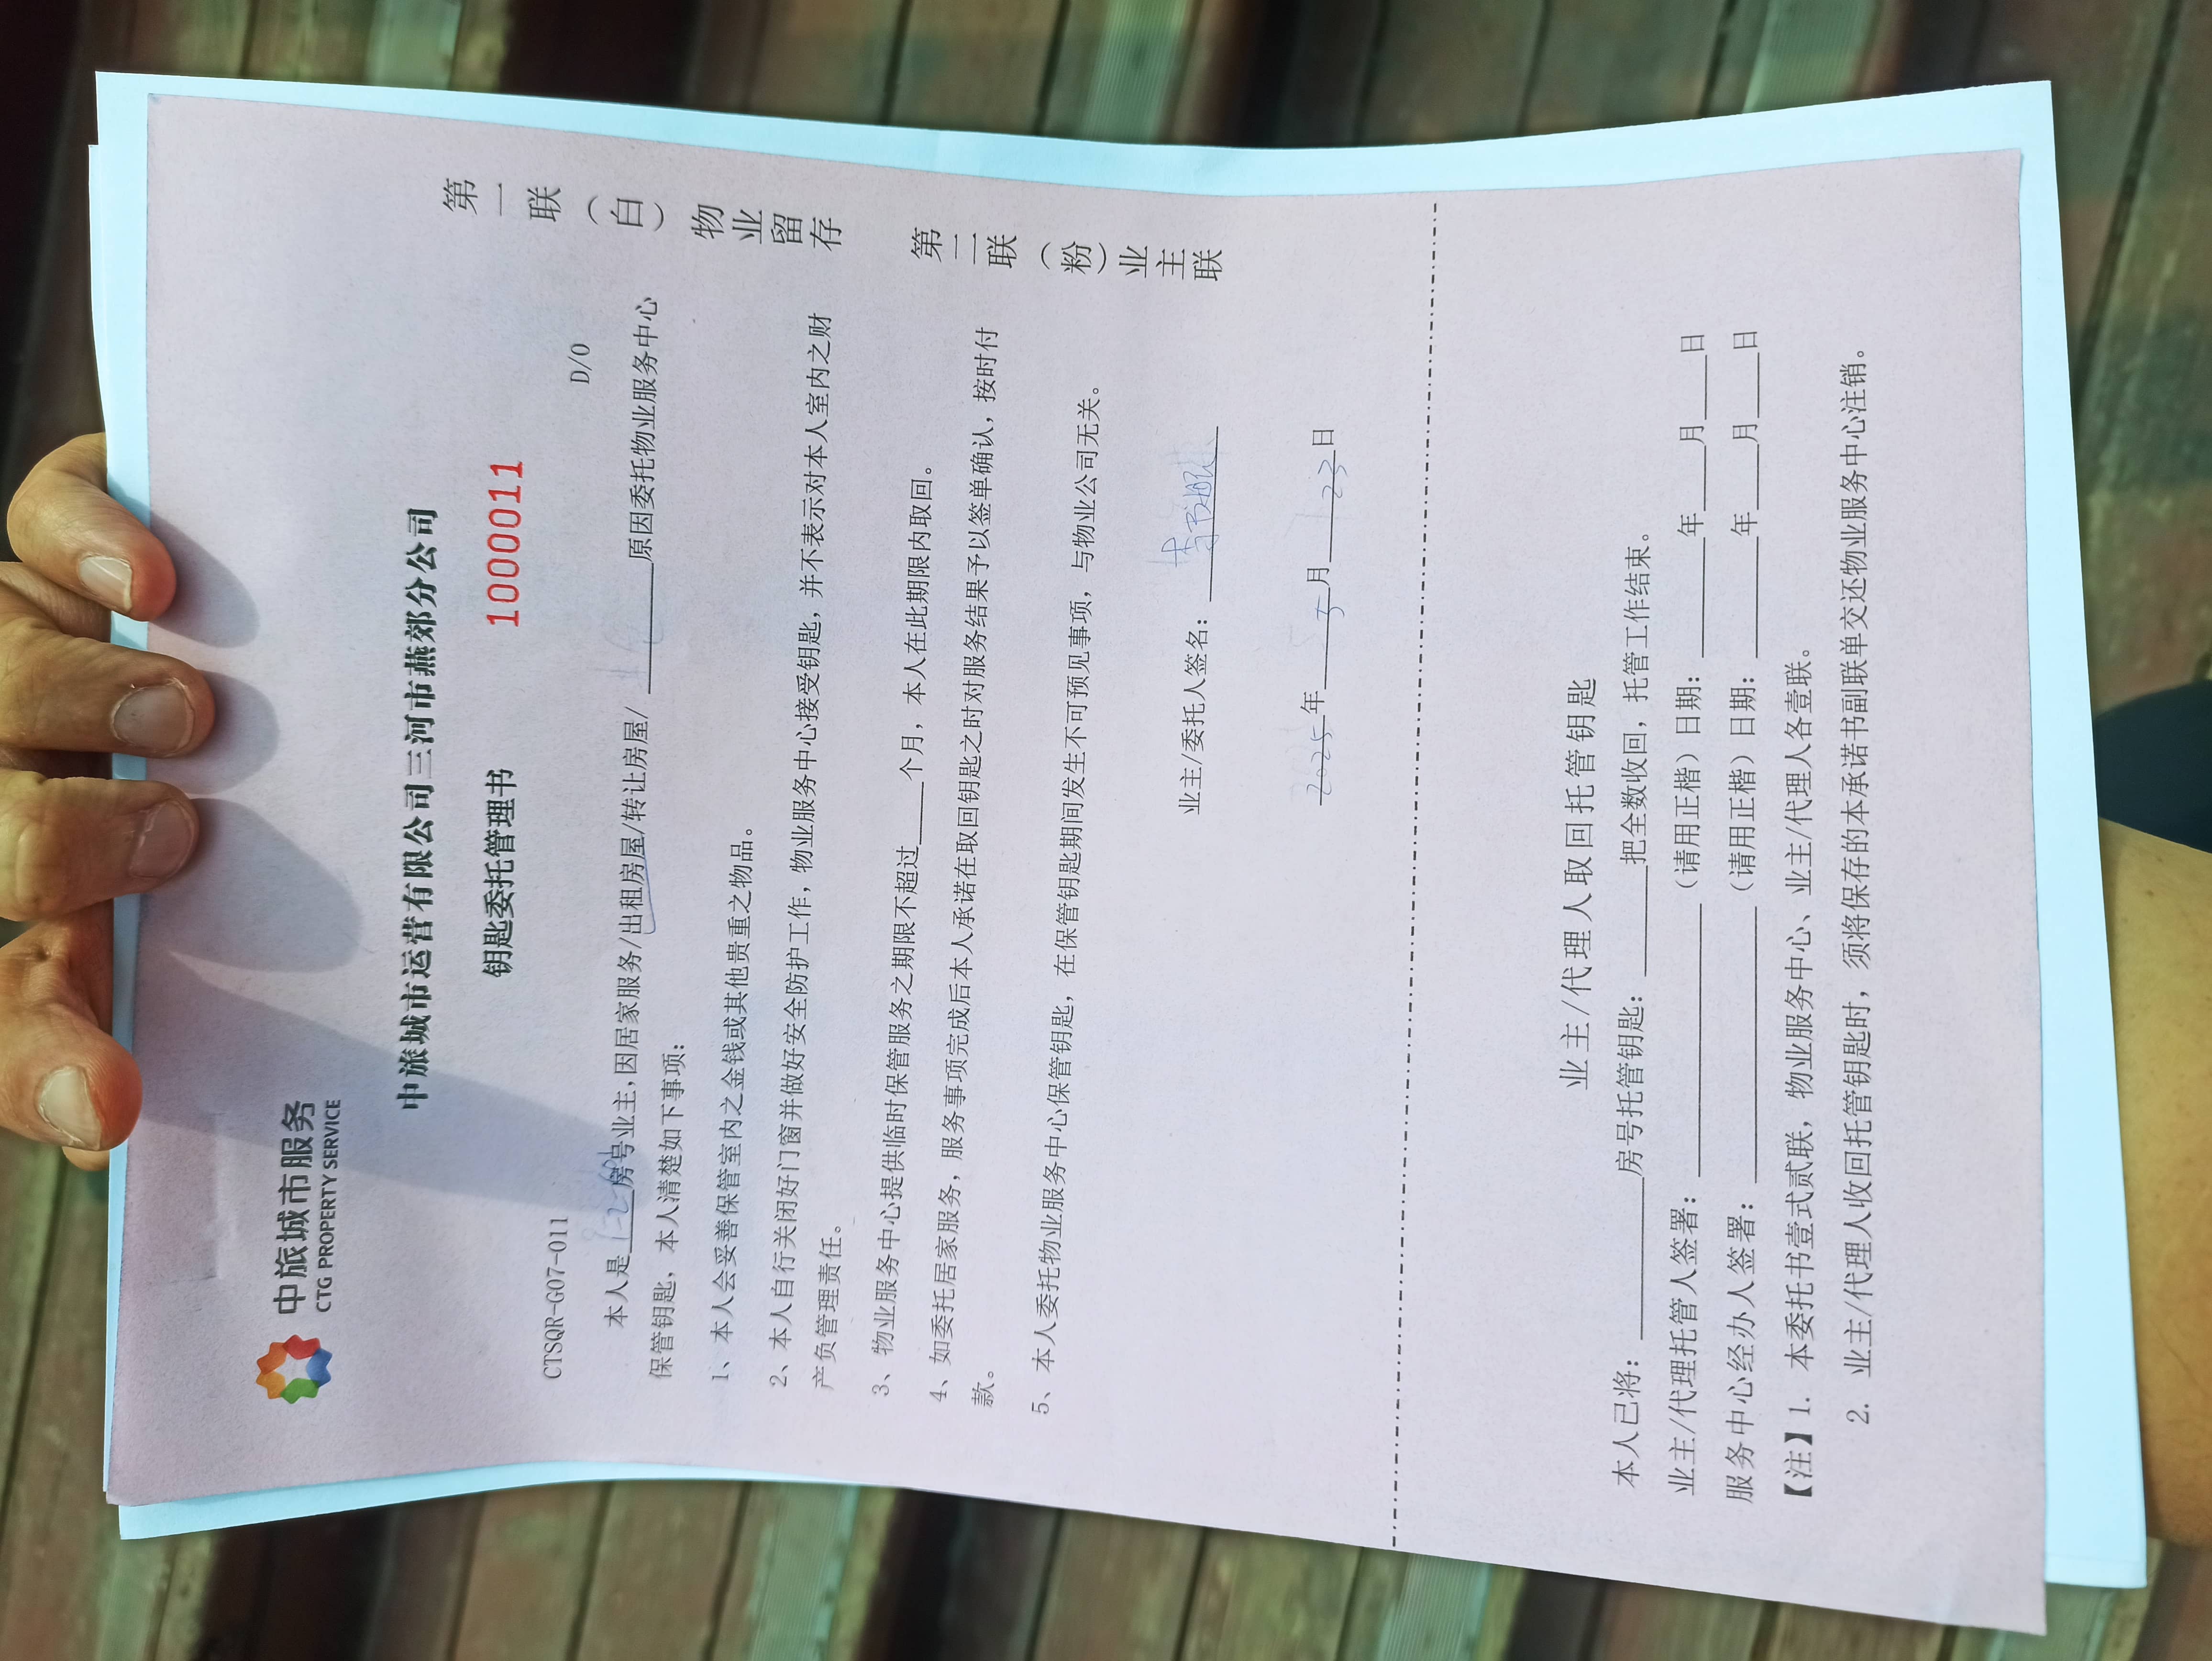 中旅城市服务
CTG PROPERTY SERVICE
中旅城市运营有限公司三河市燕郊分公司
钥匙委托管理书 1000011
CTSQR-G07-011
D/0
本人是____房号业主,因居家服务/出租房屋/转让房屋/ ________原因委托物业服务中心
保管钥匙，本人清楚如下事项：
1、本人会妥善保管室内之金钱或其他贵重之物品。
2、本人自行关闭好门窗并做好安全防护工作，物业服务中心接受钥匙，并不表示对本人室内之财
产负管理责任。
3、物业服务中心提供临时保管服务之期限不超过____个月，本人在此期限内取回。
4、如委托居家服务，服务事项完成后本人承诺在取回钥匙之时对服务结果予以签单确认，按时付
款。
5、本人委托物业服务中心保管钥匙，在保管钥匙期间发生不可预见事项，与物业公司无关。
业主/委托人签名：
2025年 5月 23日
第一联（白）物业留存 第二联（粉）业主联
业主/代理人取回托管钥匙
本人已将：__________房号托管钥匙：_______把全数收回，托管工作结束。
业主/代理托管人签署：_________________（请用正楷）日期：________年____月____日
服务中心经办人签署：_________________（请用正楷）日期：________年____月____日
【注】1. 本委托书壹式贰联，物业服务中心、业主/代理人各壹联。
2. 业主/代理人收回托管钥匙时，须将保存的本承诺书副联单交还物业服务中心注销。